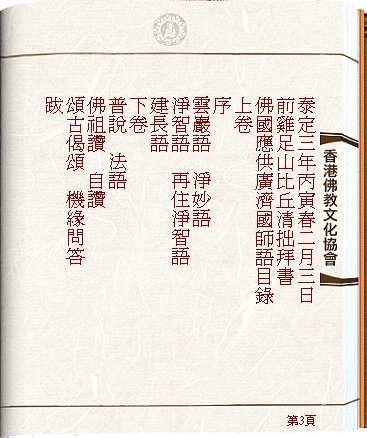 泰定三年丙寅春二月三日
前雞足山比丘清拙拜書
佛國應供廣濟國師語目錄
上卷
序
雲巖語　淨妙語
淨智語　再住淨智語
建長語
下卷
普說　法語
佛祖讚　自讚
頌古偈頌　機緣問答
跋
香港佛教文化協會
第3頁